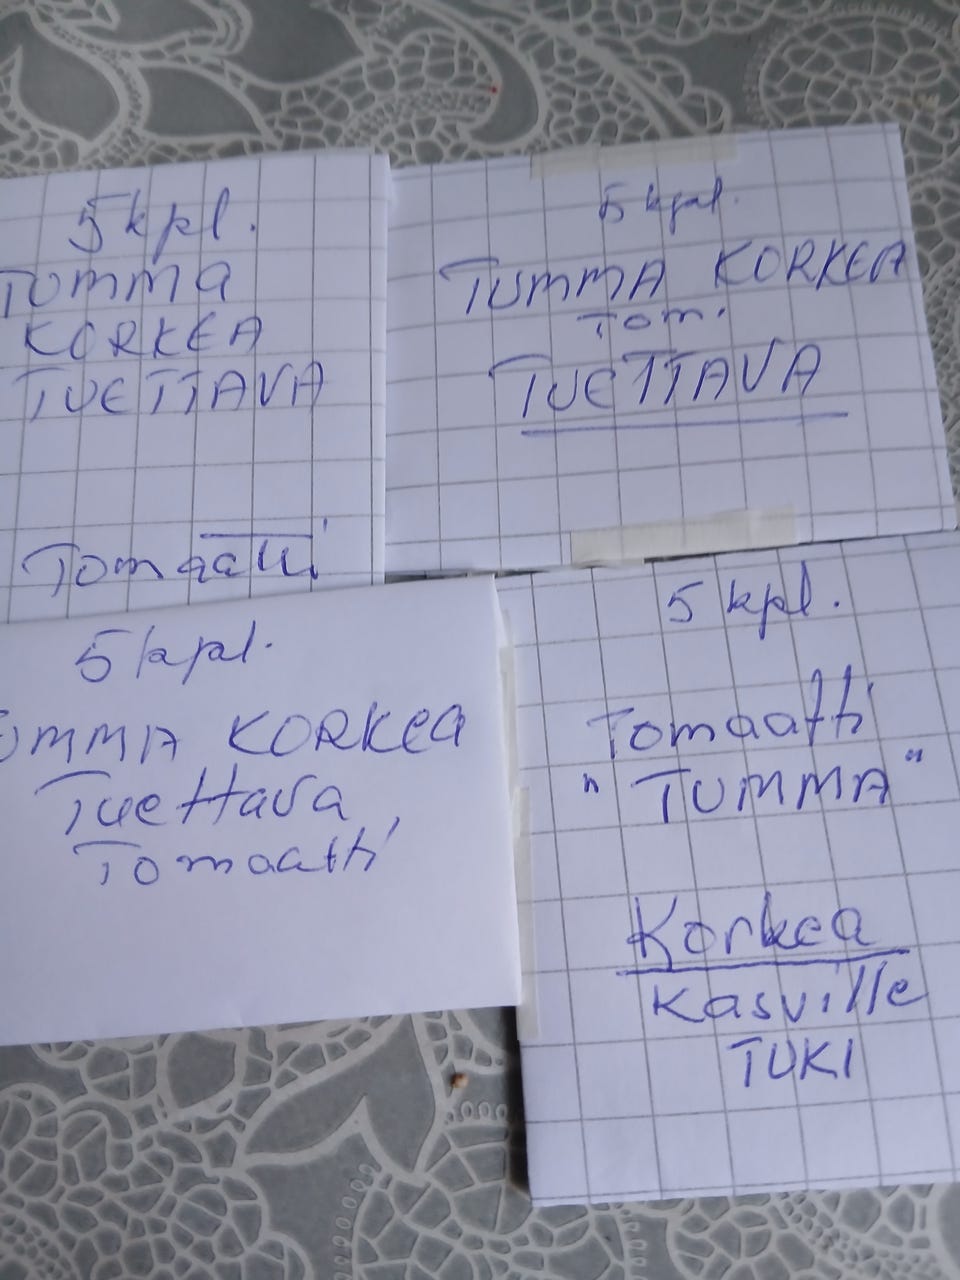 5 kpl.
TUMMA
KORKEA
TUETTAVA
Tomaatti
5 kpl.
TUMMA KORKEA
Tom.
TUETTAVA
5 kpl.
UMMA KORKEA
Tuettava
Tomaatti
5 kpl.
Tomaatti
"TUMMA"
Korkea
Kasville
TUKI